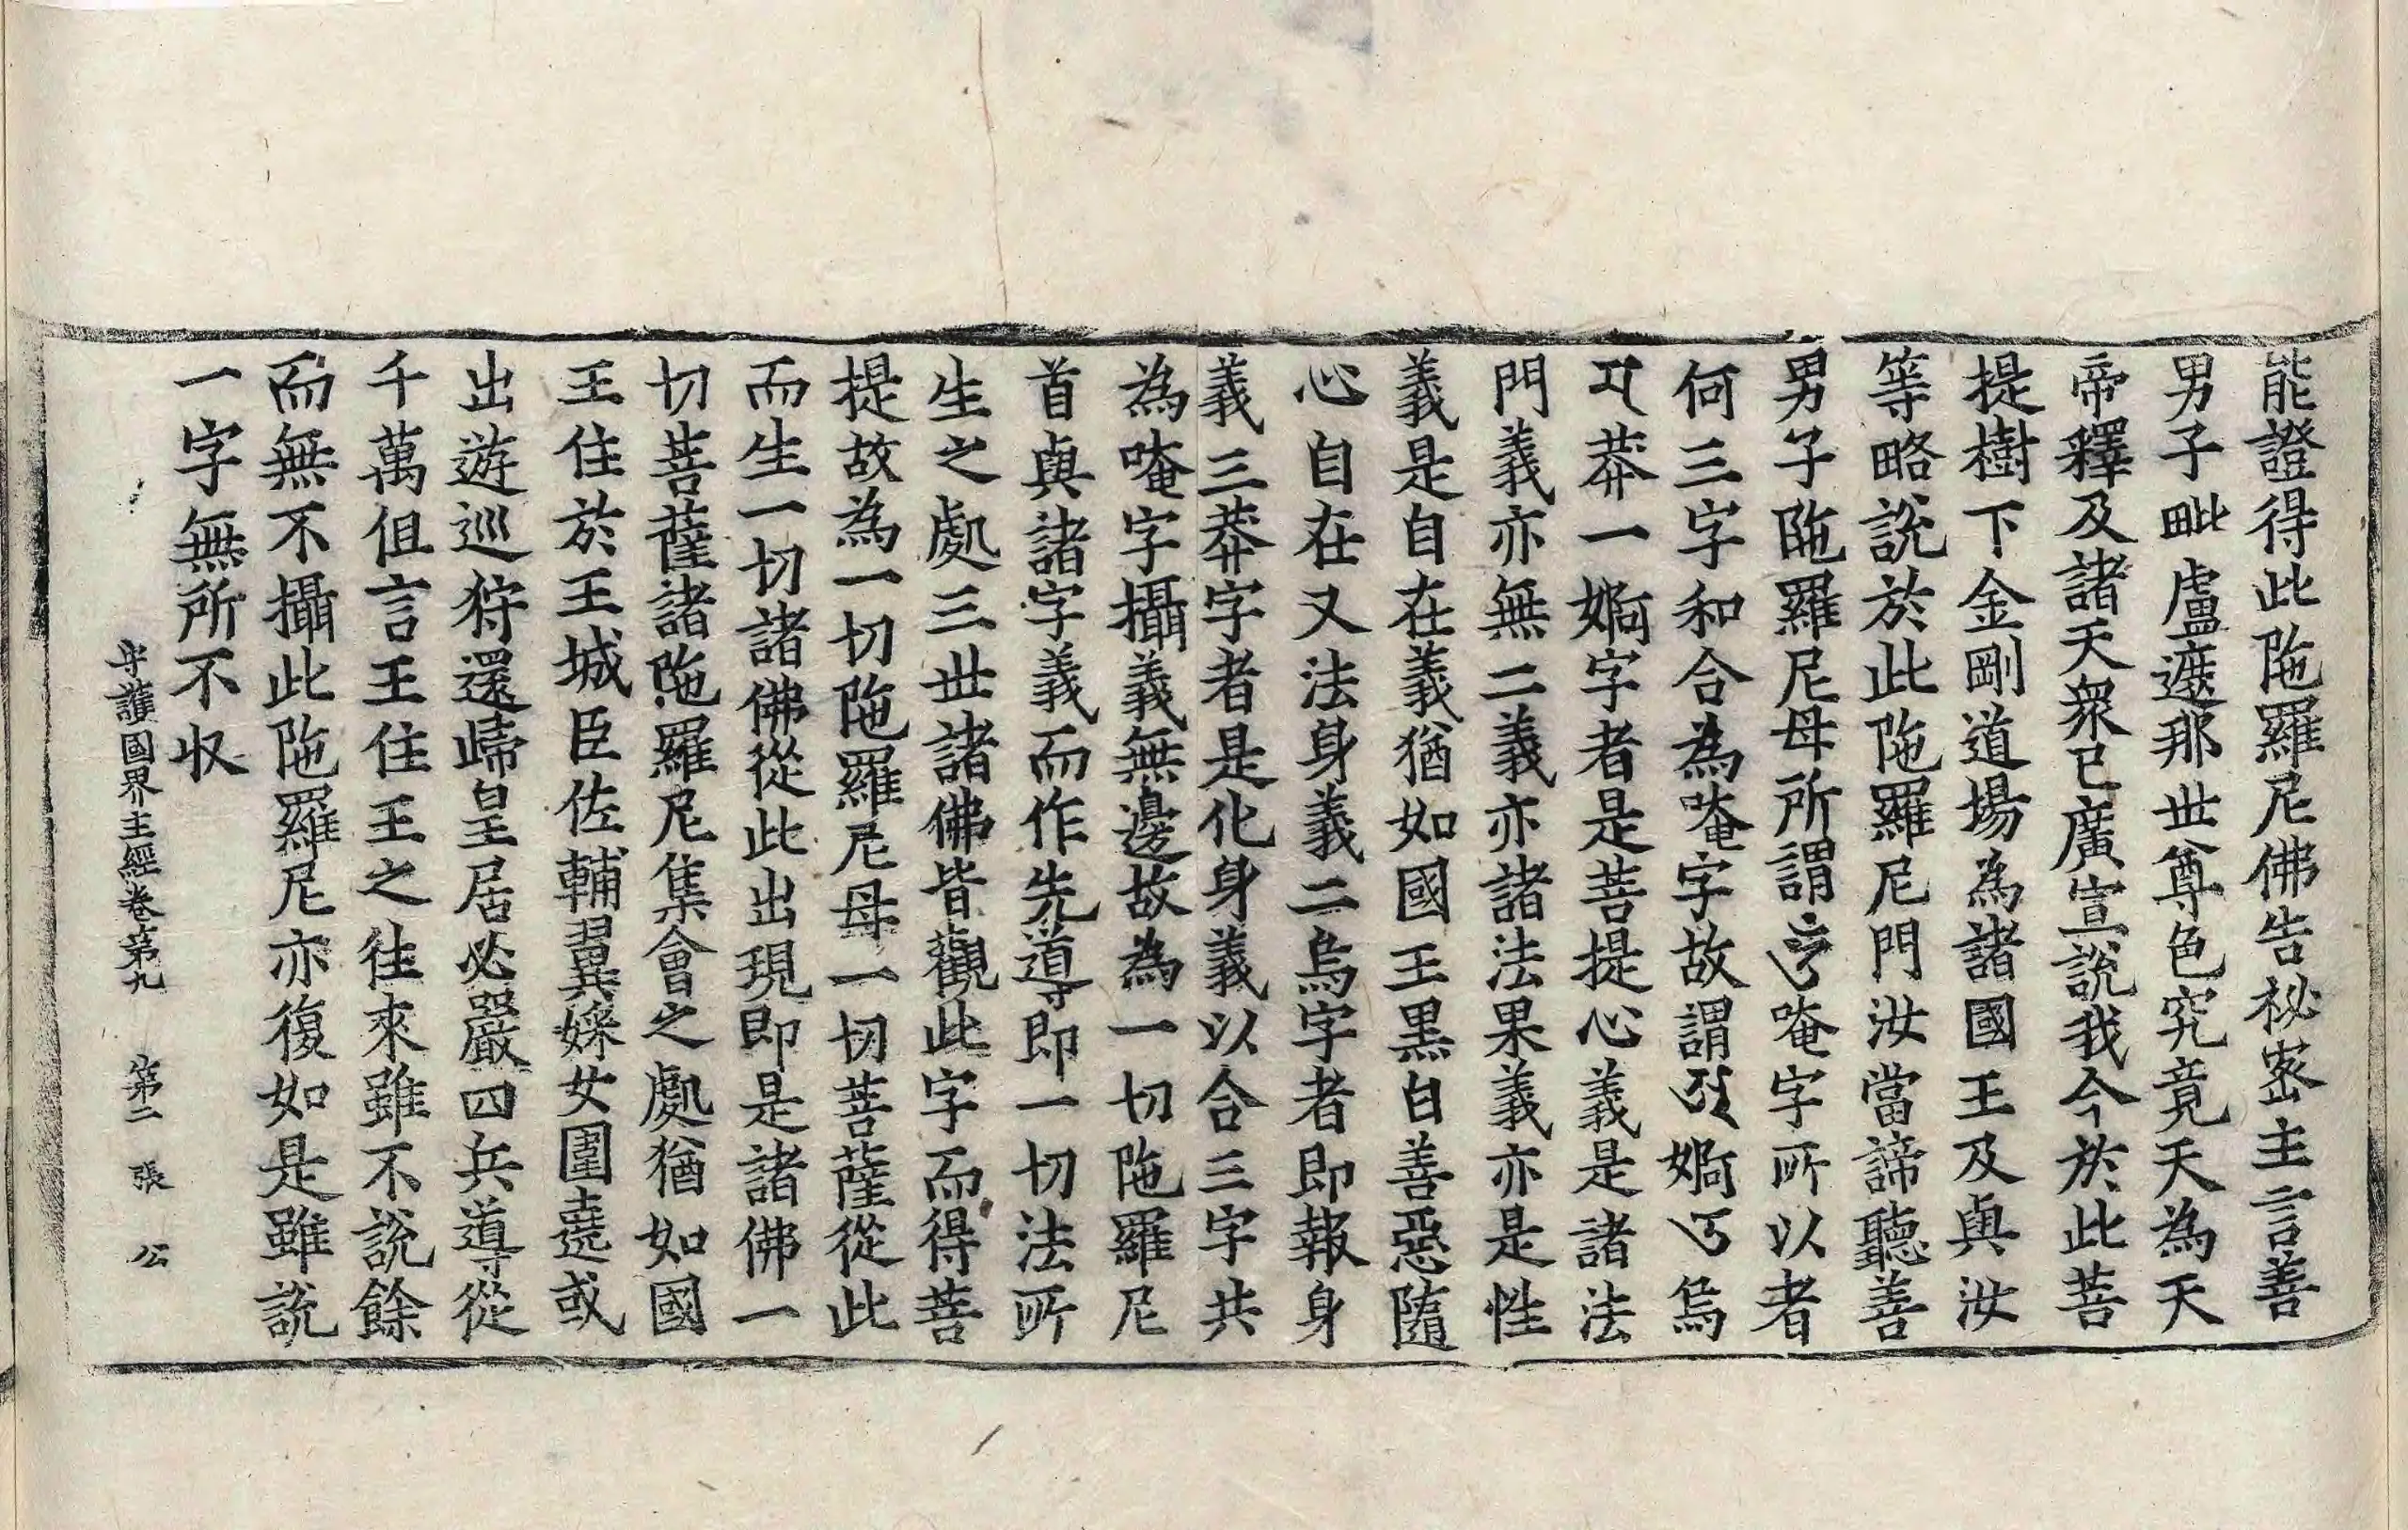 能證得此陁羅尼佛告秘宻主言善
男子毗盧遮那世尊色究竟天為天
帝釋及諸天衆已廣宣說我今於此菩
提樹下金剛道場為諸國王及與汝
等略說於此陁羅尼門汝當諦聽善
男子陁羅尼母所謂唵字所以者
何三字和合為唵字故謂婀烏
莽一婀字者是菩提心義是諸法
門義亦無二義亦諸法果義亦是性
義是自在義猶如國王黑白善惡隨
心自在又法身義二烏字者即報身
義三莽字者是化身義以合三字共
為唵字攝義無邊故為一切陁羅尼
首與諸字義而作先導即一切法所
生之處三世諸佛皆觀此字而得菩
提故為一切陁羅尼母一切菩薩從此
而生一切諸佛從此出現即是諸佛一
切菩薩諸陁羅尼集會之處猶如國
王住於王城臣佐輔翼婇女圍遶或
出遊巡狩還歸皇居必嚴四兵導從
千萬但言王住王之往來雖不說餘
而無不攝此陁羅尼亦復如是雖說
一字無所不収
守護國界主經卷第九 第二張 公